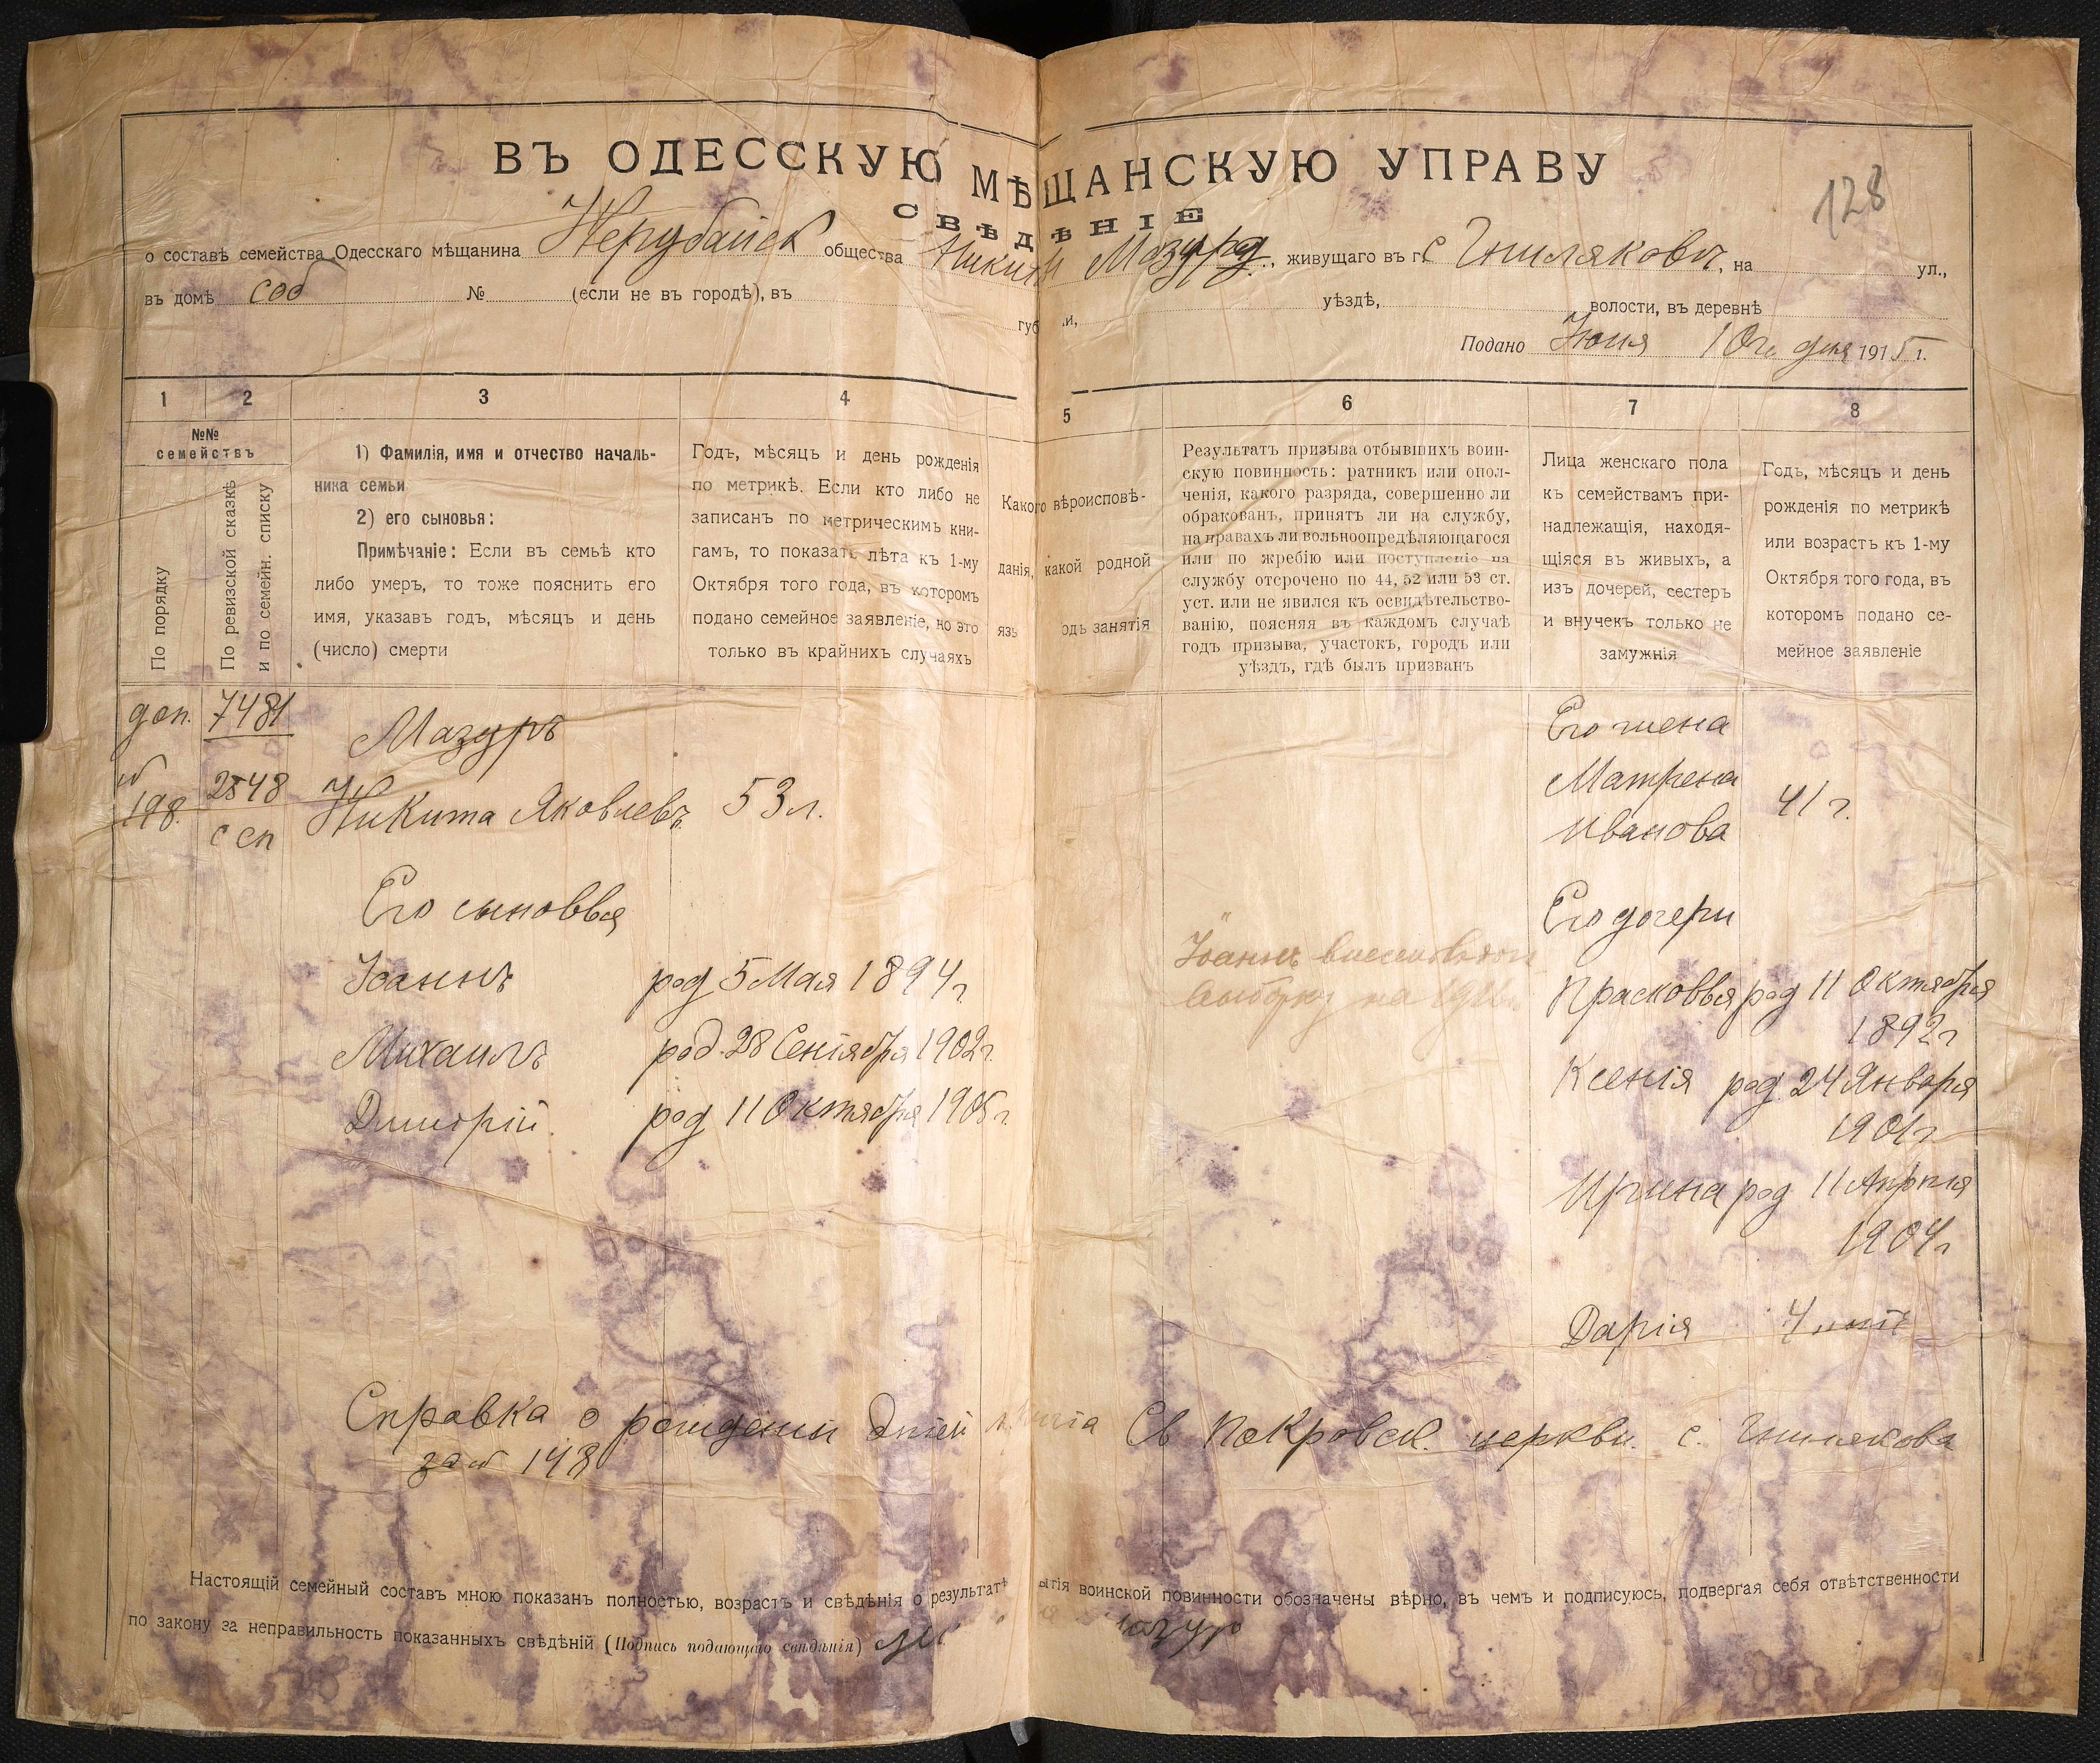 ВЪ ОДЕССКУЮ МѢЩАНСКУЮ УПРАВУ
128
СВѢДѢНІЕ
о составѣ семейства Одесскаго мѣщанина Нерубайск общества Никиты Мазура, живущаго въ г. с Гниляковѣ, на ул.,
въ домѣ соб № (если не въ городѣ), въ губ и, уѣздѣ, волости, въ деревнѣ
Подано Іюня 10го дня 1915 г.
1 2 3 4 5 6 7 8
№№ семействъ
По порядку
По ревизской сказкѣ
и по семейн. списку
1) Фамилія, имя и отчество началь-
ника семьи
2) его сыновья:
Примѣчаніе: Если въ семьѣ кто
либо умеръ, то тоже пояснить его
имя, указавъ годъ, мѣсяцъ и день
(число) смерти
Годъ, мѣсяцъ и день рожденія
по метрикѣ. Если кто либо не
записанъ по метрическимъ кни-
гамъ, то показать лѣта къ 1-му
Октября того года, въ которомъ
подано семейное заявленіе, но это
только въ крайнихъ случаяхъ
Какого вѣроисповѣ-
данія, какой родной
язы одъ занятія
Результатъ призыва отбывшихъ воин-
скую повинность: ратникъ или опол-
ченія, какого разряда, совершенно ли
обракованъ, принятъ ли на службу,
на правахъ ли вольноопредѣляющагося
или по жребію или поступленіе на
службу отсрочено по 44, 52 или 53 ст.
уст. или не явился къ освидѣтельство-
ванію, поясняя въ каждомъ случаѣ
годъ призыва, участокъ, городъ или
уѣздъ, гдѣ былъ призванъ
Лица женскаго пола
къ семействамъ при-
надлежащія, находя-
щіяся въ живыхъ, а
изъ дочерей, сестеръ
и внучекъ только не
замужнія
Годъ, мѣсяцъ и день
рожденія по метрикѣ
или возрастъ къ 1-му
Октября того года, въ
которомъ подано се-
мейное заявленіе
доп. 7481 Мазуръ
№ 198 2848 с сп Никита Яковлевъ 53 л.
Его сыновья
Іоаннъ род 5 Мая 1894 г
Михаилъ род. 28 Сентября 1902 г.
Дмитрій род 11 Октября 1905 г.
Іоаннъ
на
Его жена
Матрена 41 г.
Иванова
Его дочери
Прасковья род 11 Октября
1892 г
Ксенія род. 24 Января
1901 г
Ирина род 11 Апрѣля
1904 г
Дарія 4
Справка о рожденіи Св Покровск. церкви. с. Гнилякова
за № 148
Настоящій семейный составъ мною показанъ полностью, возрастъ и свѣдѣнія о результатѣ ытія воинской повинности обозначены вѣрно, въ чемъ и подписуюсь, подвергая себя отвѣтственности
по закону за неправильность показанныхъ свѣдѣній (Подпись подающаго свѣдѣнія) Мазуръ